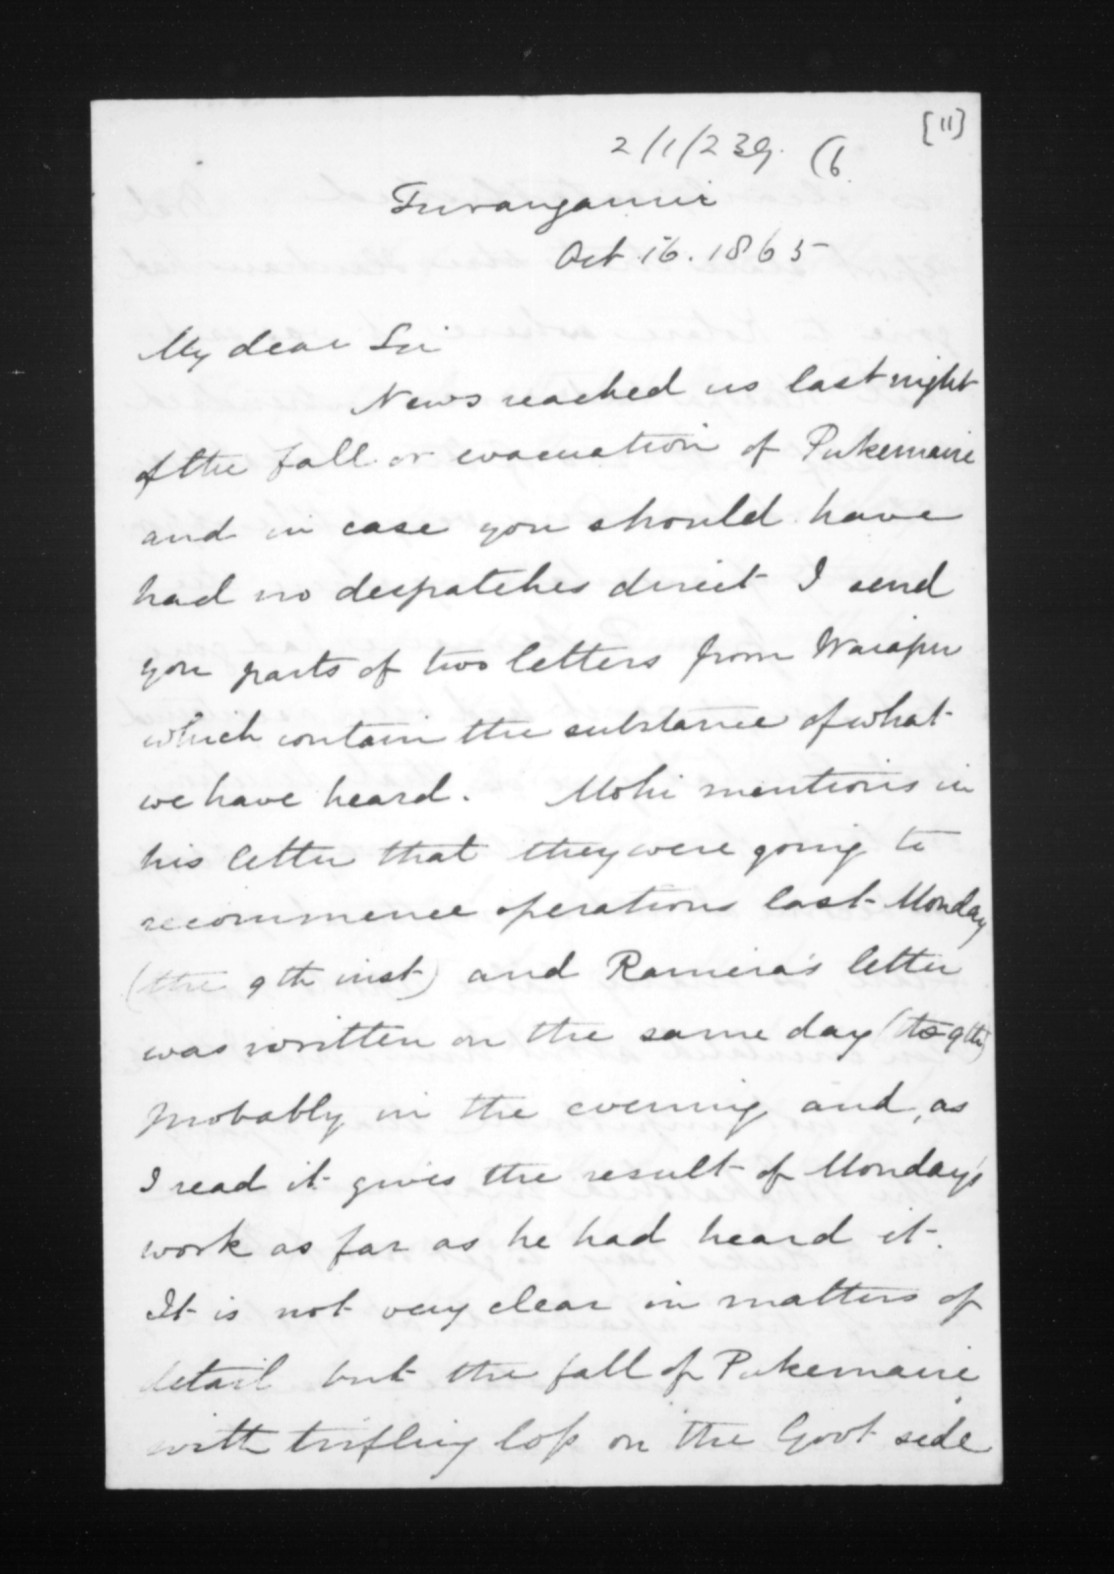 [11]
2/1/239. (6
Turanganui
Oct 16. 1865
My dear Sir
News reached us last night
of the fall or evacuation of Pukemaire
and in case you should have
had no despatches direct I send
you parts of two letters from Waiapu
which contain the substance of what
we have heard. Mohi mentions in
his letter that they were going to
recommence operations last Monday
(the 9th inst) and Ramera's letter
was written on the same day (the 9th)
probably in the evening and, as
I read it gives the result of Monday's
work as far as he had heard it.
It is not very clear in matters of
detail but the fall of Pukemaire
with trifling loss on the Govt side